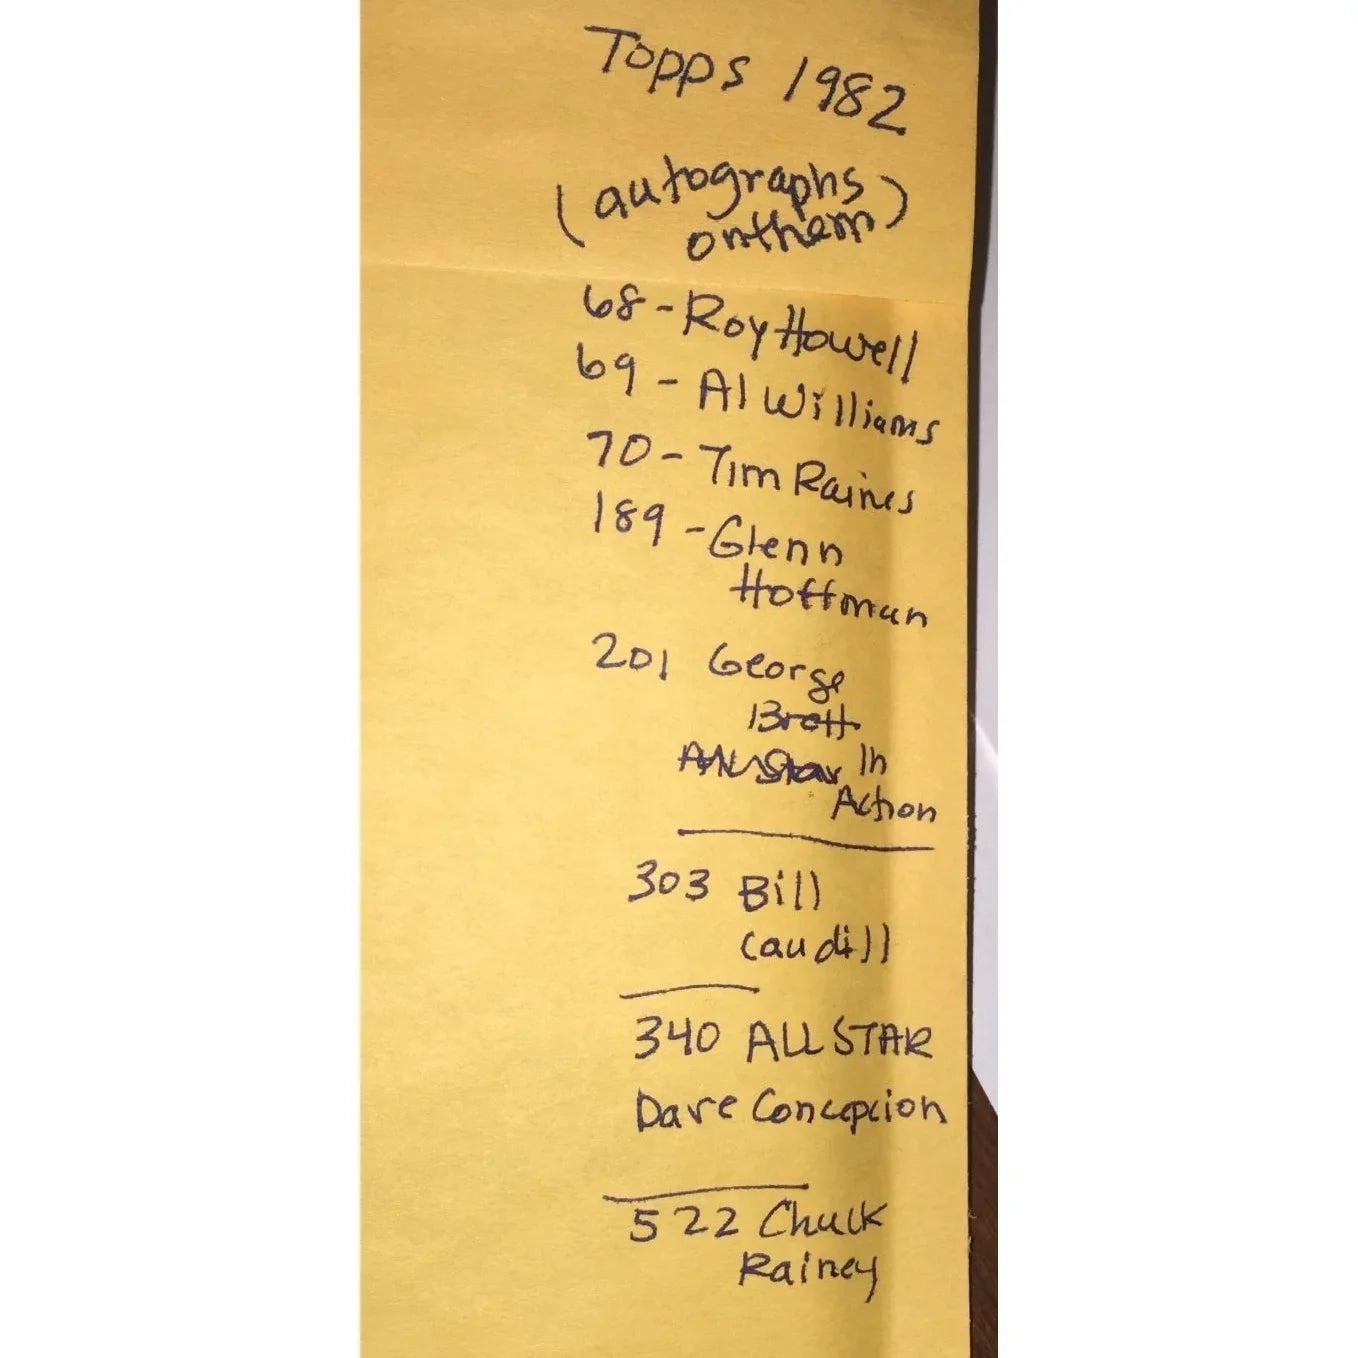 Topps 1982
(autographs
onthem)
68 - Roy Howell
69 - Al Williams
70 - Tim Raines
189 - Glenn
Hoffman
201 George
Brett
All Star In
Action
303 Bill
Caudill
340 ALL STAR
Dave Concepcion
522 Chuck
Rainey